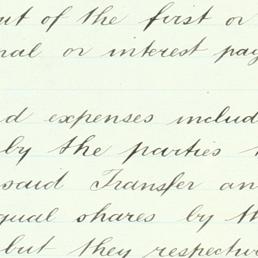 out of the first or
nal or interest pay
d expenses includ
by the parties
said Transfer an
qual shares by th
but they respectiv